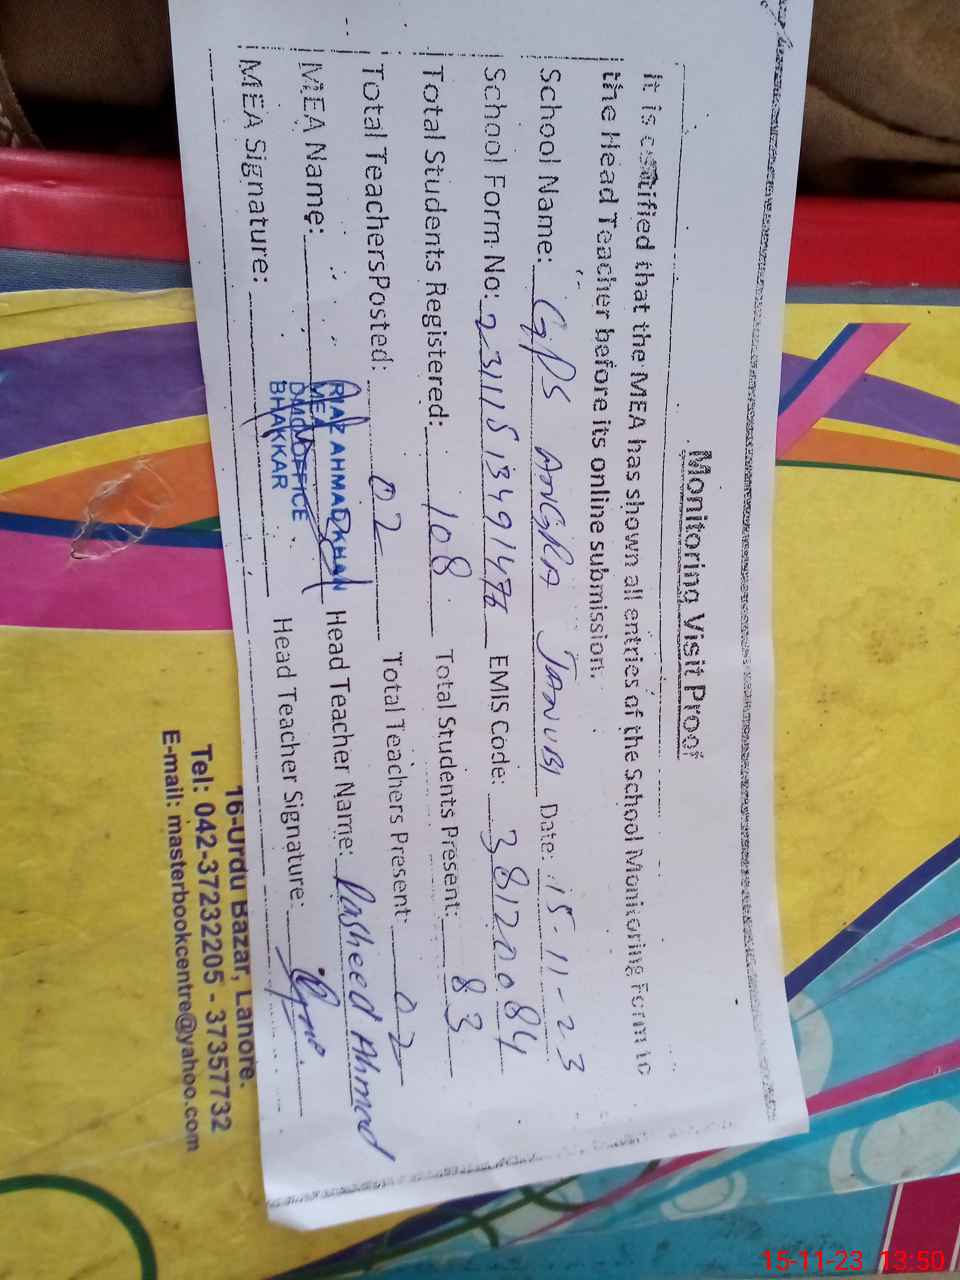 Monitoring Visit Proof
It is certified that the MEA has shown all entries of the School Monitoring Form to
the Head Teacher before its online submission.
School Name: GPS ANGRA JANUBI Date: 15-11-23
School Form No: 23111513491476 EMIS Code: 38120084
Total Students Registered: 108 Total Students Present: 83
Total TeachersPosted: 02 Total Teachers Present: 02
MEA Name: RIAZ AHMAD KHAN Head Teacher Name: Rasheed Ahmad
MEA
DMO OFFICE
BHAKKAR
MEA Signature: Head Teacher Signature:
16-Urdu Bazar, Lahore.
Tel: 042-37232205 - 37357732
E-mail: masterbookcentre@yahoo.com
15-11-23 13:50